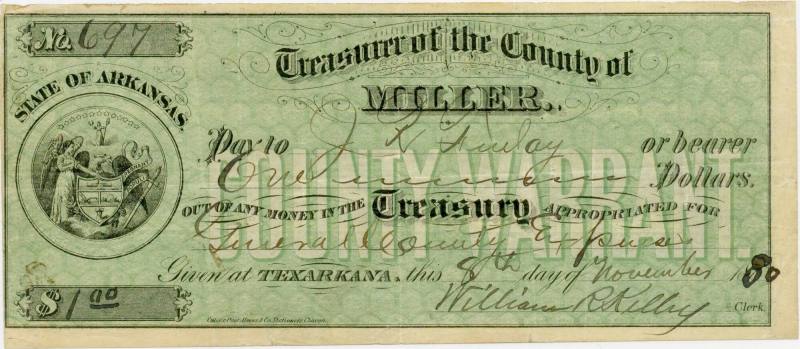 No. 697
STATE OF ARKANSAS.
Treasurer of the County of
MILLER.
Pay to J R Finlay or bearer
One Dollars.
COUNTY WARRANT.
OUT OF ANY MONEY IN THE Treasury APPROPRIATED FOR
General County Expenses
Given at TEXARKANA, this 8th day of November 1880
William R. Kelley Clerk.
$1 00